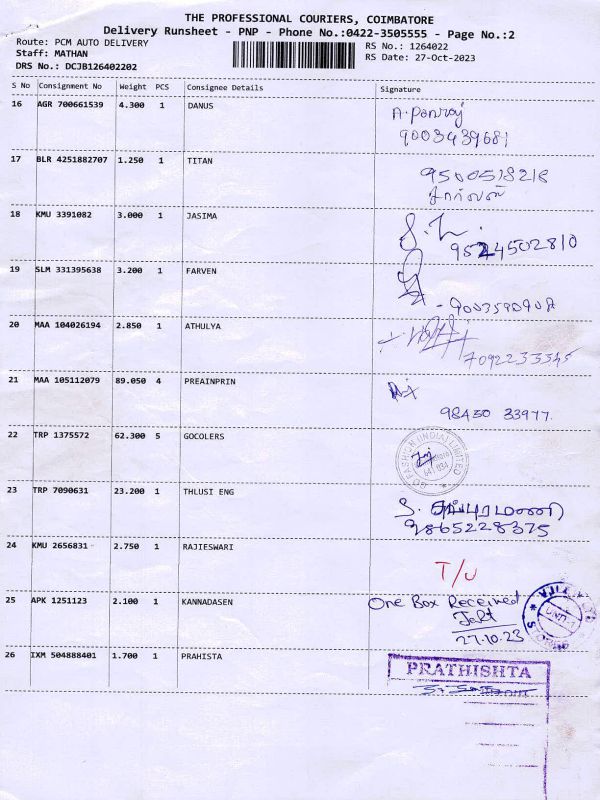 THE PROFESSIONAL COURIERS, COIMBATORE
Delivery Runsheet - PNP - Phone No.:0422-3505555 - Page No.:2
Route: PCM AUTO DELIVERY
Staff: MATHAN
DRS No.: DCJB126402202
RS No.: 1264022
RS Date: 27-Oct-2023
S No Consignment No Weight PCS Consignee Details Signature
16 AGR 700661539 4.300 1 DANUS
9003439681
17 BLR 4251882707 1.250 1 TITAN
9500518218
18 KMU 3391082 3.000 1 JASIMA
9524502810
19 SLM 331395638 3.200 1 FARVEN
- 9003590908
20 MAA 104026194 2.850 1 ATHULYA
7092233345
21 MAA 105112079 89.050 4 PREAINPRIN
98430 33977.
22 TRP 1375572 62.300 5 GOCOLERS
GO FASHION (INDIA) LIMITED
23 TRP 7090631 23.200 1 THLUSI ENG
9865228375
24 KMU 2656831 2.750 1 RAJIESWARI
T/U
25 APK 1251123 2.100 1 KANNADASEN
One Box Received
27.10.23
26 IXM 504888401 1.700 1 PRAHISTA
PRATHISHTA